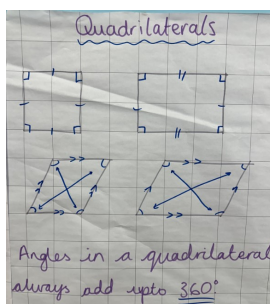 Quadrilaterals
Angles in a quadrilateral
always add upto 360°